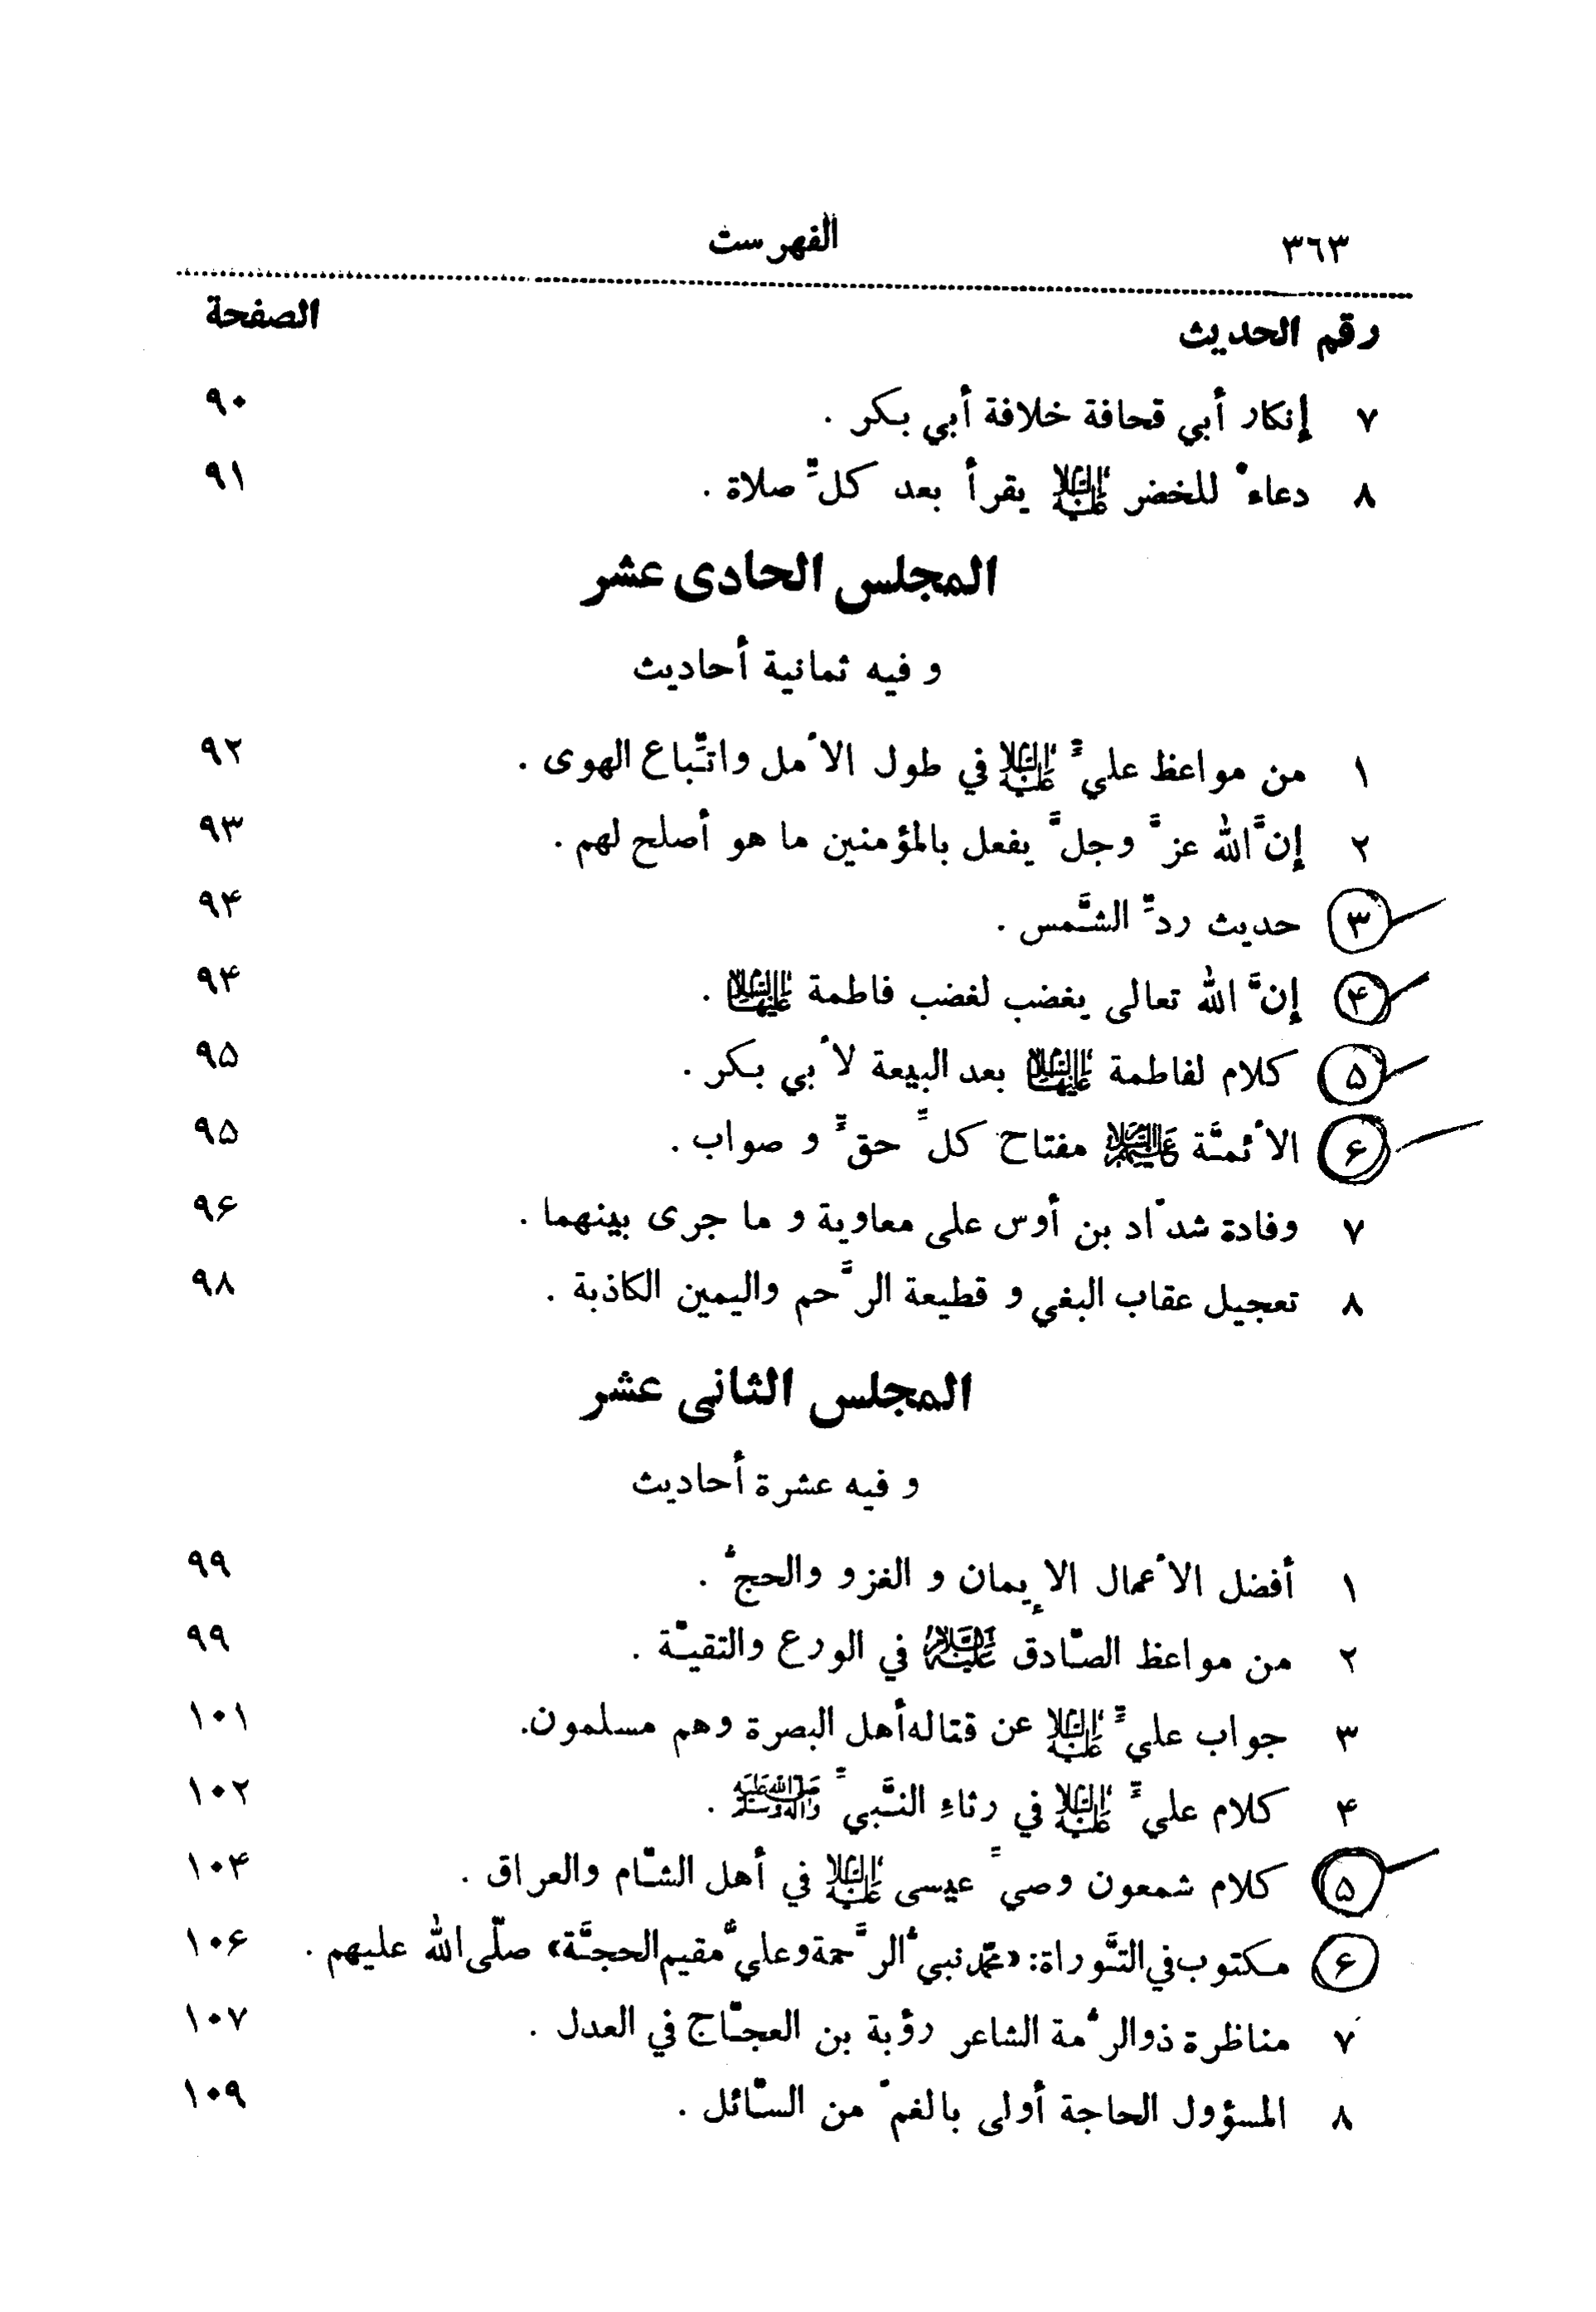 ٣٦٣ الفهرست
رقم الحديث الصفحة
٧ إنكار أبي قحافة خلافة أبي بكر . ٩٠
٨ دعاءٌ للخضر عليه السلام يقرأ بعد كلِّ صلاة . ٩١
المجلس الحادى عشر
و فيه ثمانية أحاديث
١ من مواعظ عليٍّ عليه السلام في طول الأمل واتّباع الهوى . ٩٢
٢ إنَّ الله عزَّ وجلَّ يفعل بالمؤمنين ما هو أصلح لهم . ٩٣
٣ حديث ردِّ الشَّمس . ٩۴
۴ إنَّ الله تعالى يغضب لغضب فاطمة عليها السلام . ٩۴
۵ كلام لفاطمة عليها السلام بعد البيعة لأبي بكر . ٩۵
۶ الأئمَّة عليهم السلام مفتاح كلِّ حقٍّ و صواب . ٩۵
٧ وفادة شدّاد بن أوس على معاوية و ما جرى بينهما . ٩۶
٨ تعجيل عقاب البغي و قطيعة الرَّحم واليمين الكاذبة . ٩٨
المجلس الثانى عشر
و فيه عشرة أحاديث
١ أفضل الأعمال الإيمان و الغزو والحجُّ . ٩٩
٢ من مواعظ الصّادق عليه السلام في الورع والتقيّة . ٩٩
٣ جواب عليٍّ عليه السلام عن قتاله أهل البصرة وهم مسلمون. ١٠١
۴ كلام عليٍّ عليه السلام في رثاءِ النَّبيِّ صلى الله عليه وآله وسلم . ١٠٢
۵ كلام شمعون وصيِّ عيسى عليه السلام في أهل الشّام والعراق . ١٠۴
۶ مكتوب في التَّوراة: «محمّد نبيُّ الرَّحمة وعليٌّ مقيم الحجَّة» صلّى الله عليهم . ١٠۶
٧ مناظرة ذوالرُّمة الشاعر رؤبة بن العجّاج في العدل . ١٠٧
٨ المسؤول الحاجة أولى بالغمّ من السّائل . ١٠٩